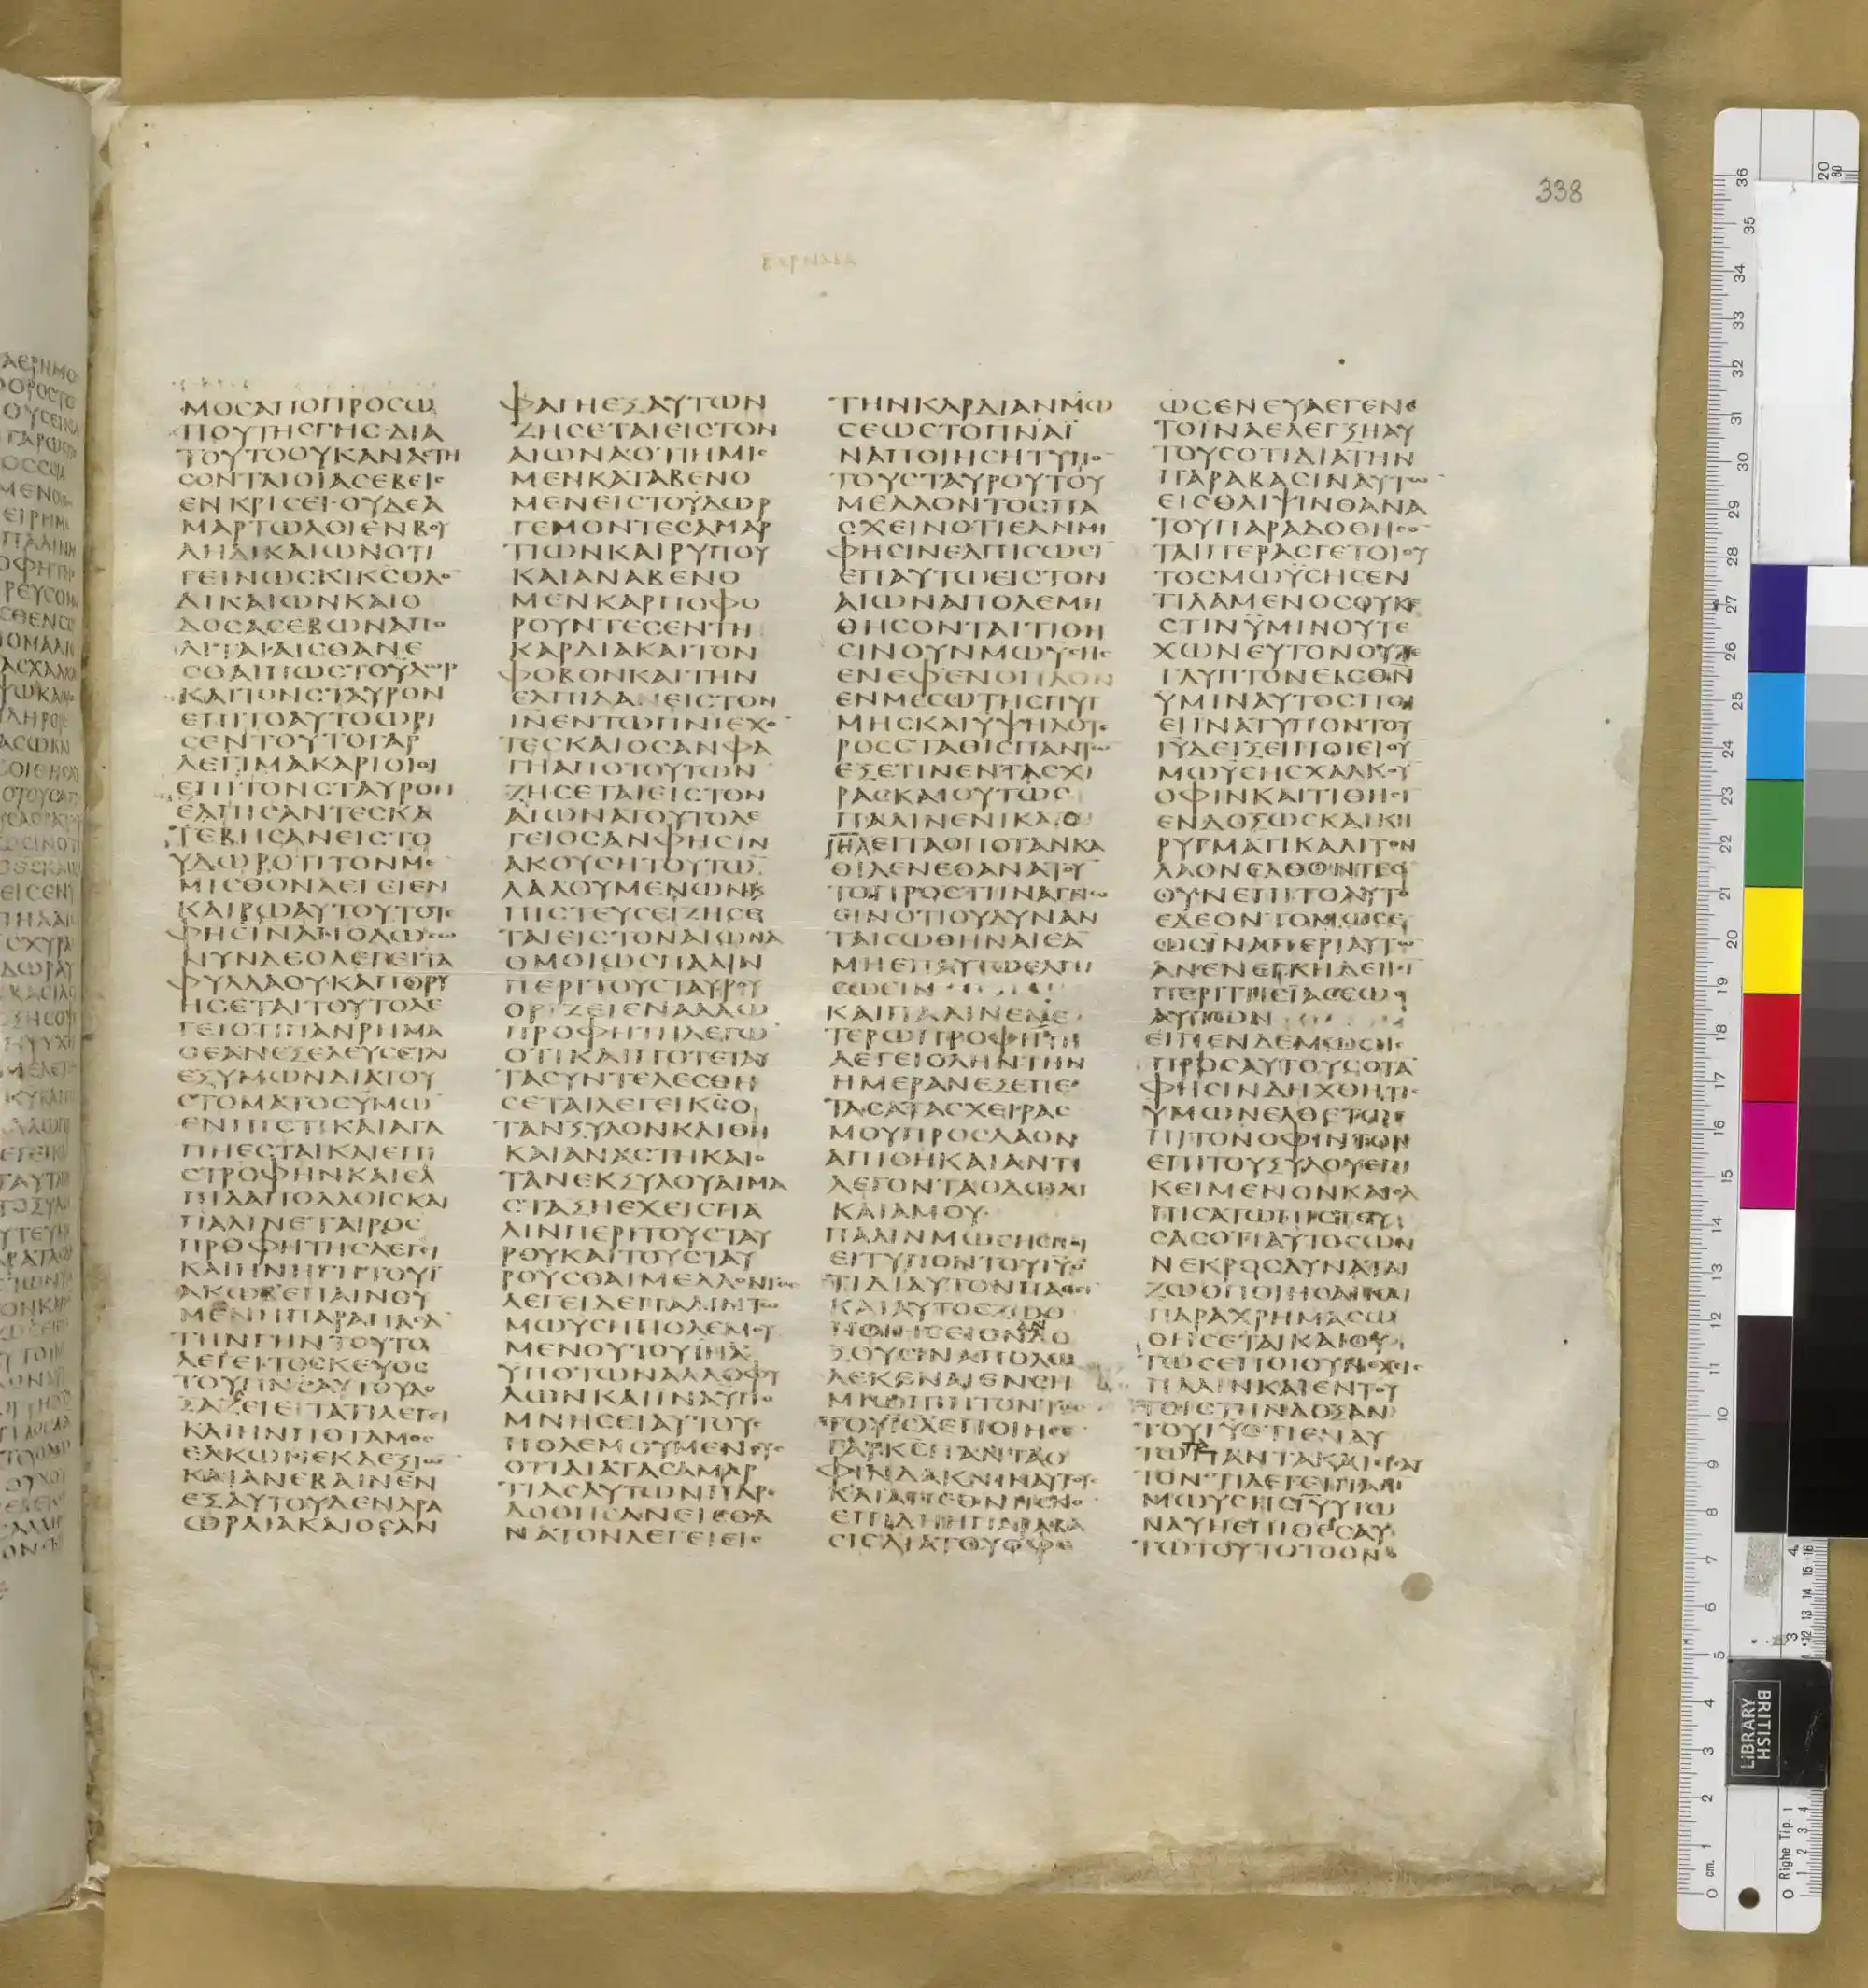 338
ΒΑΡΝΑΒΑ
ΜΟCΑΠΟΠΡΟCΩ
ΠΟΥΤΗCΓΗC·ΔΙΑ
ΤΟΥΤΟΟΥΚΑΝΑCΤΗ
CΟΝΤΑΙΟΙΑCΕΒΕΙC
ΕΝΚΡΙCΕΙ·ΟΥΔΕΑ
ΜΑΡΤΩΛΟΙΕΝΒΟΥ
ΛΗΔΙΚΑΙΩΝΟΤΙ
ΓΕΙΝΩCΚΙΚCΟΔΟ
ΔΙΚΑΙΩΝΚΑΙΟ
ΔΟCΑCΕΒΩΝΑΠΟ
ΛΙΤΑΙ·ΑΙCΘΑΝΕ
CΘΑΙΠΩCΤΟΥΔΩΡ
ΚΑΙΤΟΝCΤΑΥΡΟΝ
ΕΠΙΤΟΑΥΤΟΩΡΙ
CΕΝΤΟΥΤΟΓΑΡ
ΛΕΓΙΜΑΚΑΡΙΟΙΟΙ
ΕΠΙΤΟΝCΤΑΥΡΟΝ
ΕΛΠΙCΑΝΤΕCΚΑ
ΤΕΒΗCΑΝΕΙCΤΟ
ΥΔΩΡΟΤΙΤΟΝΜΕ
ΜΙCΘΟΝΛΕΓΕΙΕΝ
ΚΑΙΡΩΑΥΤΟΥΤΟΤΕ
ΦΗCΙΝΑΠΟΔΩCΩ
ΝΥΝΔΕΟΛΕΓΕΙΤΑ
ΦΥΛΛΑΟΥΚΑΠΟΡΥ
ΗCΕΤΑΙΤΟΥΤΟΛΕ
ΓΕΙΟΤΙΠΑΝΡΗΜΑ
ΟΕΑΝΕΞΕΛΕΥCΕΤΑΙ
ΕΞΥΜΩΝΔΙΑΤΟΥ
CΤΟΜΑΤΟCΥΜΩ
ΕΝΠΙCΤΙΚΑΙΑΓΑ
ΠΗΕCΤΑΙΚΑΙΕΠΙ
CΤΡΟΦΗΝΚΑΙΕΛ
ΠΙΔΑΠΟΛΛΟΙCΚΑΙ
ΠΑΛΙΝΕΤΑΙΡΟC
ΠΡΟΦΗΤΗCΛΕΓΕΙ
ΚΑΙΗΝΗΓΗΤΟΥΙ
ΑΚΩΒΕΠΑΙΝΟΥ
ΜΕΝΗΠΑΡΑΠΑCΑ
ΤΗΝΓΗΝΤΟΥΤΟ
ΛΕΓΕΙΤΟCΚΕΥΟC
ΤΟΥΠΝCΑΥΤΟΥΔΟ
ΞΑΖΕΙΕΙΤΑΤΙΛΕΓΕΙ
ΚΑΙΗΝΠΟΤΑΜΟC
ΕΛΚΩΝΕΚΔΕΞΙΩ
ΚΑΙΑΝΕΒΑΙΝΕΝ
ΕΞΑΥΤΟΥΔΕΝΔΡΑ
ΩΡΑΙΑΚΑΙΟCΑΝ
ΦΑΓΗΕΞΑΥΤΩΝ
ΖΗCΕΤΑΙΕΙCΤΟΝ
ΑΙΩΝΑΟΤΙΗΜΙC
ΜΕΝΚΑΤΑΒΕΝΟ
ΜΕΝΕΙCΤΟΥΔΩΡ
ΓΕΜΟΝΤΕCΑΜΑΡ
ΤΙΩΝΚΑΙΡΥΠΟΥ
ΚΑΙΑΝΑΒΕΝΟ
ΜΕΝΚΑΡΠΟΦΟ
ΡΟΥΝΤΕCΕΝΤΗ
ΚΑΡΔΙΑΚΑΙΤΟΝ
ΦΟΒΟΝΚΑΙΤΗΝ
ΕΛΠΙΔΑΝΕΙCΤΟΝ
ΙΝΕΝΤΩΠΝΙΕΧΟ
ΤΕCΚΑΙΟCΑΝΦΑ
ΓΗΑΠΟΤΟΥΤΩΝ
ΖΗCΕΤΑΙΕΙCΤΟΝ
ΑΙΩΝΑΤΟΥΤΟΛΕ
ΓΕΙΟCΑΝΦΗCΙΝ
ΑΚΟΥCΗΤΟΥΤΩ
ΛΑΛΟΥΜΕΝΩΝΚ
ΠΙCΤΕΥCΕΙΖΗCΕ
ΤΑΙΕΙCΤΟΝΑΙΩΝΑ
ΟΜΟΙΩCΠΑΛΙΝ
ΠΕΡΙΤΟΥCΤΑΥΡΟΥ
ΟΡΙΖΕΙΕΝΑΛΛΩ
ΠΡΟΦΗΤΗΛΕΓΩ
ΟΤΙΚΑΙΠΟΤΕΤΑΥ
ΤΑCΥΝΤΕΛΕCΘΗ
CΕΤΑΙΛΕΓΕΙΚCΟ
ΤΑΝΞΥΛΟΝΚΛΙΘΗ
ΚΑΙΑΝΑCΤΗΚΑΙΟ
ΤΑΝΕΚΞΥΛΟΥΑΙΜΑ
CΤΑΞΗΕΧΕΙCΠΑ
ΛΙΝΠΕΡΙΤΟΥCΤΑΥ
ΡΟΥΚΑΙΤΟΥCΤΑΥ
ΡΟΥCΘΑΙΜΕΛΛΟΝΤΟC
ΛΕΓΕΙΔΕΠΑΛΙΝΤΩ
ΜΩΥCΗΠΟΛΕΜΟΥ
ΜΕΝΟΥΤΟΥΙΗΛ
ΥΠΟΤΩΝΑΛΛΟΦΥ
ΛΩΝΚΑΙΙΝΑΥΠΟ
ΜΝΗCΕΙΑΥΤΟΥC
ΠΟΛΕΜΟΥΜΕΝΟΥC
ΟΤΙΔΙΑΤΑCΑΜΑΡ
ΤΙΑCΑΥΤΩΝΠΑΡΕ
ΔΟΘΗCΑΝΕΙCΘΑ
ΝΑΤΟΝΛΕΓΕΙΕΙC
ΤΗΝΚΑΡΔΙΑΝΜΩ
CΕΩCΤΟΠΝΑΙ
ΝΑΠΟΙΗCΗΤΥΠΟ
ΤΟΥCΤΑΥΡΟΥΤΟΥ
ΜΕΛΛΟΝΤΟCΠΑ
CΧΕΙΝΟΤΙΕΑΝΜΗ
ΦΗCΙΝΕΛΠΙCΩCΙ
ΕΠΑΥΤΩΕΙCΤΟΝ
ΑΙΩΝΑΠΟΛΕΜΗ
ΘΗCΟΝΤΑΙΤΙΘΗ
CΙΝΟΥΝΜΩΥCΗC
ΕΝΕΦΕΝΟΠΛΟΝ
ΕΝΜΕCΩΤΗCΠΥΓ
ΜΗCΚΑΙΥΨΗΛΟΤΕ
ΡΟCCΤΑΘΙCΠΑΝΤΩ
ΕΞΕΤΙΝΕΝΤΑCΧΙ
ΡΑCΚΑΙΟΥΤΩC
ΠΑΛΙΝΕΝΙΚΑΟ
ΙΗΛΕΙΤΑΟΠΟΤΑΝΚΑ
ΘΙΛΕΝΕΘΑΝΑΤΟΥ
ΤΟΠΡΟCΤΙΙΝΑΓΝΩ
CΙΝΟΤΙΟΥΔΥΝΑΝ
ΤΑΙCΩΘΗΝΑΙΕΑ
ΜΗΕΠΑΥΤΩΕΛΠΙ
CΩCΙΝ
ΚΑΙΠΑΛΙΝΕΝΕ
ΤΕΡΩΠΡΟΦΗΤΗ
ΛΕΓΕΙΟΛΗΝΤΗΝ
ΗΜΕΡΑΝΕΞΕΠΕ
ΤΑCΑΤΑCΧΕΙΡΑC
ΜΟΥΠΡΟCΛΑΟΝ
ΑΠΙΘΗΚΑΙΑΝΤΙ
ΛΕΓΟΝΤΑΟΔΩΔΙ
ΚΑΙΑΜΟΥ
ΠΑΛΙΝΜΩCΗCΠΟΙ
ΕΙΤΥΠΟΝΤΟΥΙΥΟ
ΤΙΔΙΑΥΤΟΝΠΑΘΕΙ
ΚΑΙΑΥΤΟCΖΩΟ
ΠΟΙΗCΕΙΟΝΔΟ
ΞΟΥCΙΝΑΠΟΛΩ
ΛΕΚΕΝΑΙΕΝCΗ
ΜΙΩΠΙΠΤΟΝΤΟC
ΤΟΥΙCΛΕΠΟΙΗCΕ
ΓΑΡΚCΠΑΝΤΑΟ
ΦΙΝΔΑΚΝΙΝΑΥΤΟΥC
ΚΑΙΑΠΕΘΝΗCΚΟ
ΕΠΙΔΗΗΠΑΡΑΒΑ
CΙCΔΙΑΤΟΥΟΦΕ
ΩCΕΝΕΥΑΕΓΕΝΕ
ΤΟΙΝΑΕΛΕΓΞΗΑΥ
ΤΟΥCΟΤΙΔΙΑΤΗΝ
ΠΑΡΑΒΑCΙΝΑΥΤΩ
ΕΙCΘΛΙΨΙΝΘΑΝΑ
ΤΟΥΠΑΡΑΔΟΘΗCΟ
ΤΑΙΠΕΡΑCΓΕΤΟΙΟΥ
ΤΟCΜΩΥCΗCΕΝ
ΤΙΛΑΜΕΝΟCΟΥΚΕ
CΤΙΝΥΜΙΝΟΥΤΕ
ΧΩΝΕΥΤΟΝΟΥΤΕ
ΓΛΥΠΤΟΝΕΙCΘΝ
ΥΜΙΝΑΥΤΟCΠΟΙ
ΕΙΙΝΑΤΥΠΟΝΤΟΥ
ΙΥΔΕΙΞΕΙΠΟΙΕΙΟΥ
ΜΩΥCΗCΧΑΛΚΟΥ
ΟΦΙΝΚΑΙΤΙΘΗCΙ
ΕΝΔΟΞΩCΚΑΙΚΗ
ΡΥΓΜΑΤΙΚΑΛΙΤΟΝ
ΛΑΟΝΕΛΘΟΝΤΕC
ΟΥΝΕΠΙΤΟΑΥΤΟ
ΕΔΕΟΝΤΟΜΩCΕ
ΩCΙΝΑΠΕΡΙΑΥΤΩ
ΑΝΕΝΕΓΚΗΔΕΗCΙ
ΠΕΡΙΤΗCΙΑCΕΩC
ΑΥΤΩΝ
ΕΙΠΕΝΔΕΜΩCΗC
ΠΡΟCΑΥΤΟΥCΟΤΑ
ΦΗCΙΝΔΗΧΘΗΤΙC
ΥΜΩΝΕΛΘΕΤΩΕ
ΠΙΤΟΝΟΦΙΝΤΟΝ
ΕΠΙΤΟΥΞΥΛΟΥΕΠΙ
ΚΕΙΜΕΝΟΝΚΑΙΕΛ
ΠΙCΑΤΩΠΙCΤΕΥ
CΑCΟΤΙΑΥΤΟCΩΝ
ΝΕΚΡΟCΔΥΝΑΤΑΙ
ΖΩΟΠΟΙΗCΑΙΚΑΙ
ΠΑΡΑΧΡΗΜΑCΩ
ΘΗCΕΤΑΙΚΑΙΟΥ
ΤΩCΕΠΟΙΟΥΝΕΧΕΙC
ΠΑΛΙΝΚΑΙΕΝΤΟΥ
ΤΟΙCΤΗΝΔΟΞΑΝ
ΤΟΥΙΥΟΤΙΕΝΑΥ
ΤΩΠΑΝΤΑΚΑΙΕΙCΑΥ
ΤΟΝΤΙΛΕΓΕΙΠΑΛΙ
ΜΩΥCΗCΙΥΥΙΩ
ΝΑΥΗΕΠΙΘΕCΑΥ
ΤΩΤΟΥΤΟΤΟΟΝΟ
BRITISH
LIBRARY